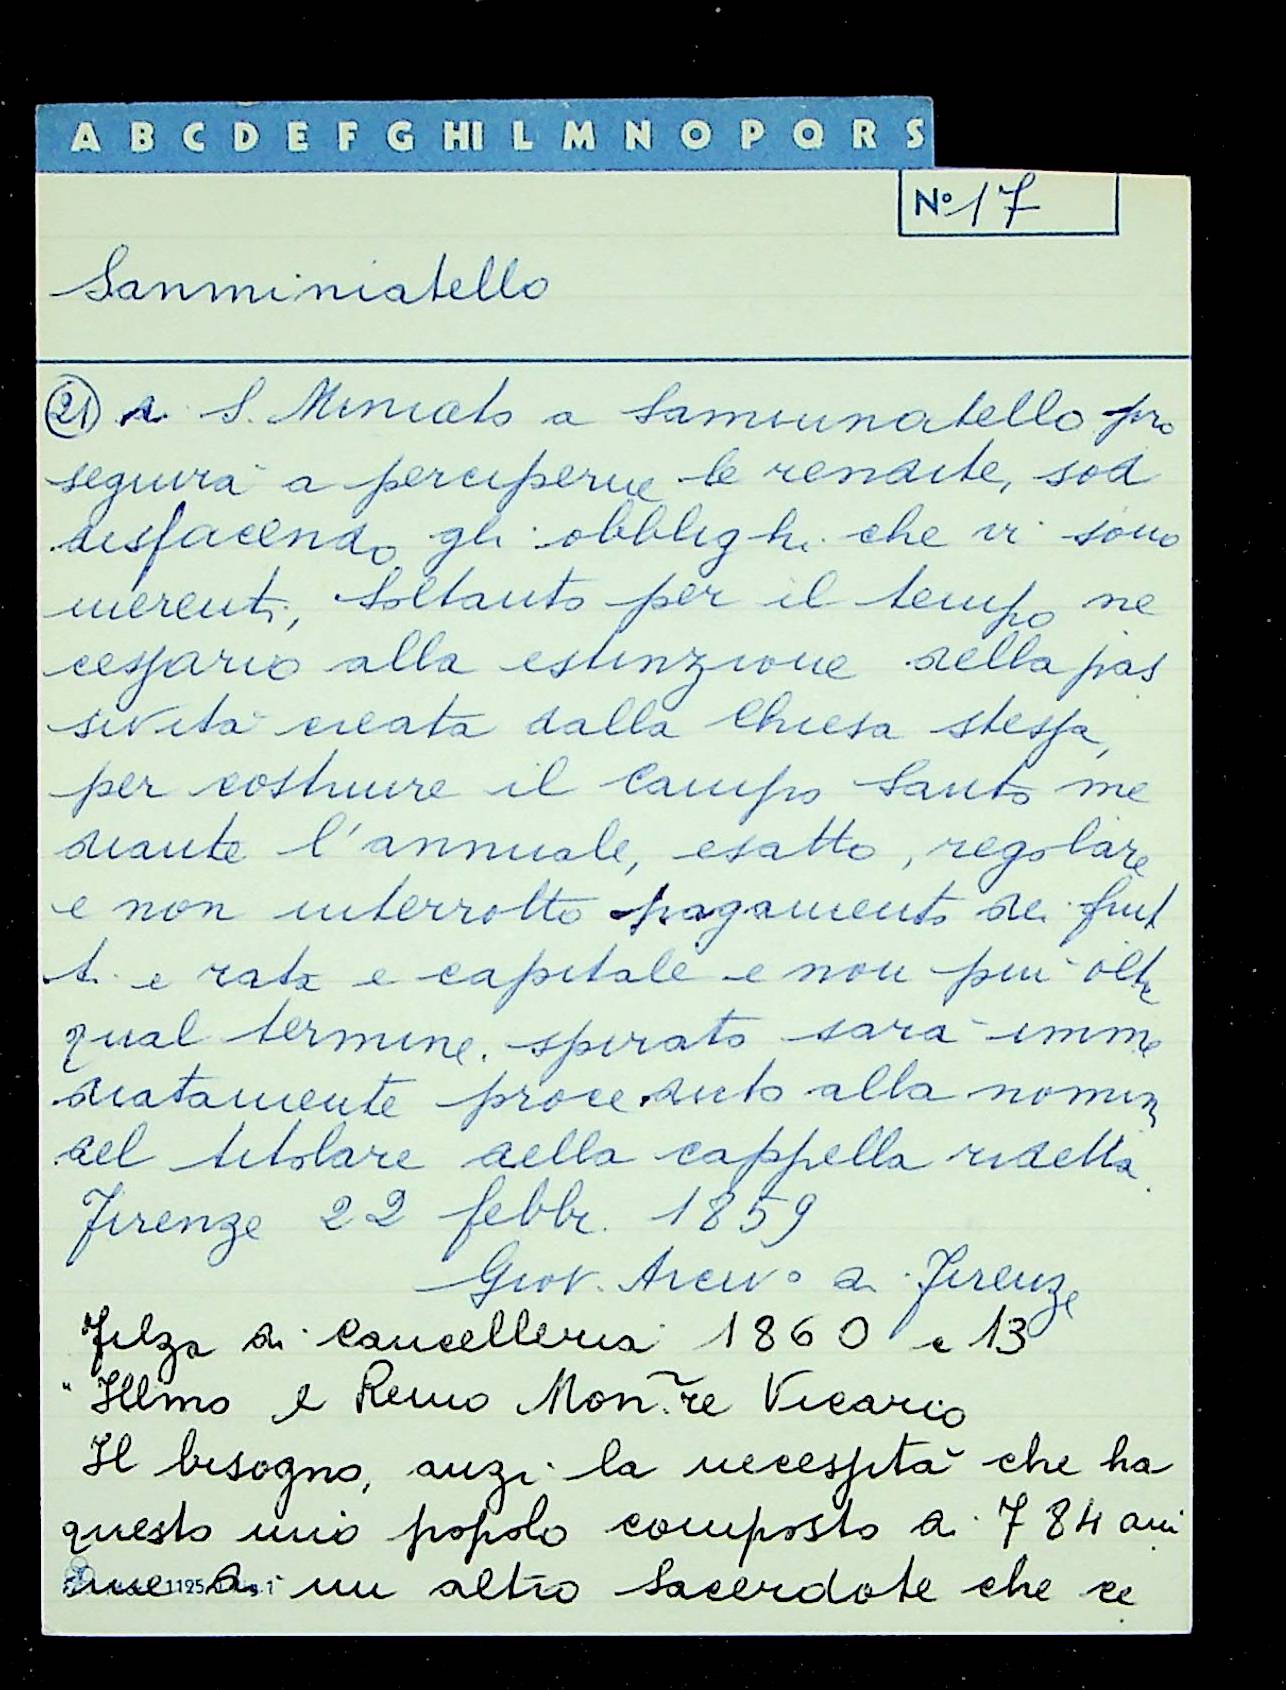 A B C D E F G HI L M N O P Q R S
N° 17
Sanminiatello
21 di S. Miniato a Samminiatello pro
seguirà a perciperne le rendite, sod
disfacendo gli obblighi che vi sono
inerenti, soltanto per il tempo ne
cessario alla estinzione della pas
sività creata dalla Chiesa stessa,
per costruire il Campo Santo me
diante l'annuale, esatto, regolare
e non interrotto pagamento dei frut
ti e rata e capitale e non più oltre
qual termine spirato sarà imme
diatamente proceduto alla nomina
del titolare della cappella ridetta.
Firenze 22 febbr. 1859
Giov. Arciv° di Firenze
Filza di Cancelleria 1860 c 13
" Illmo e Remo Mon.re Vicario
Il bisogno, anzi la necessità che ha
questo mio popolo composto di 784 ani
me di un altro Sacerdote che ce